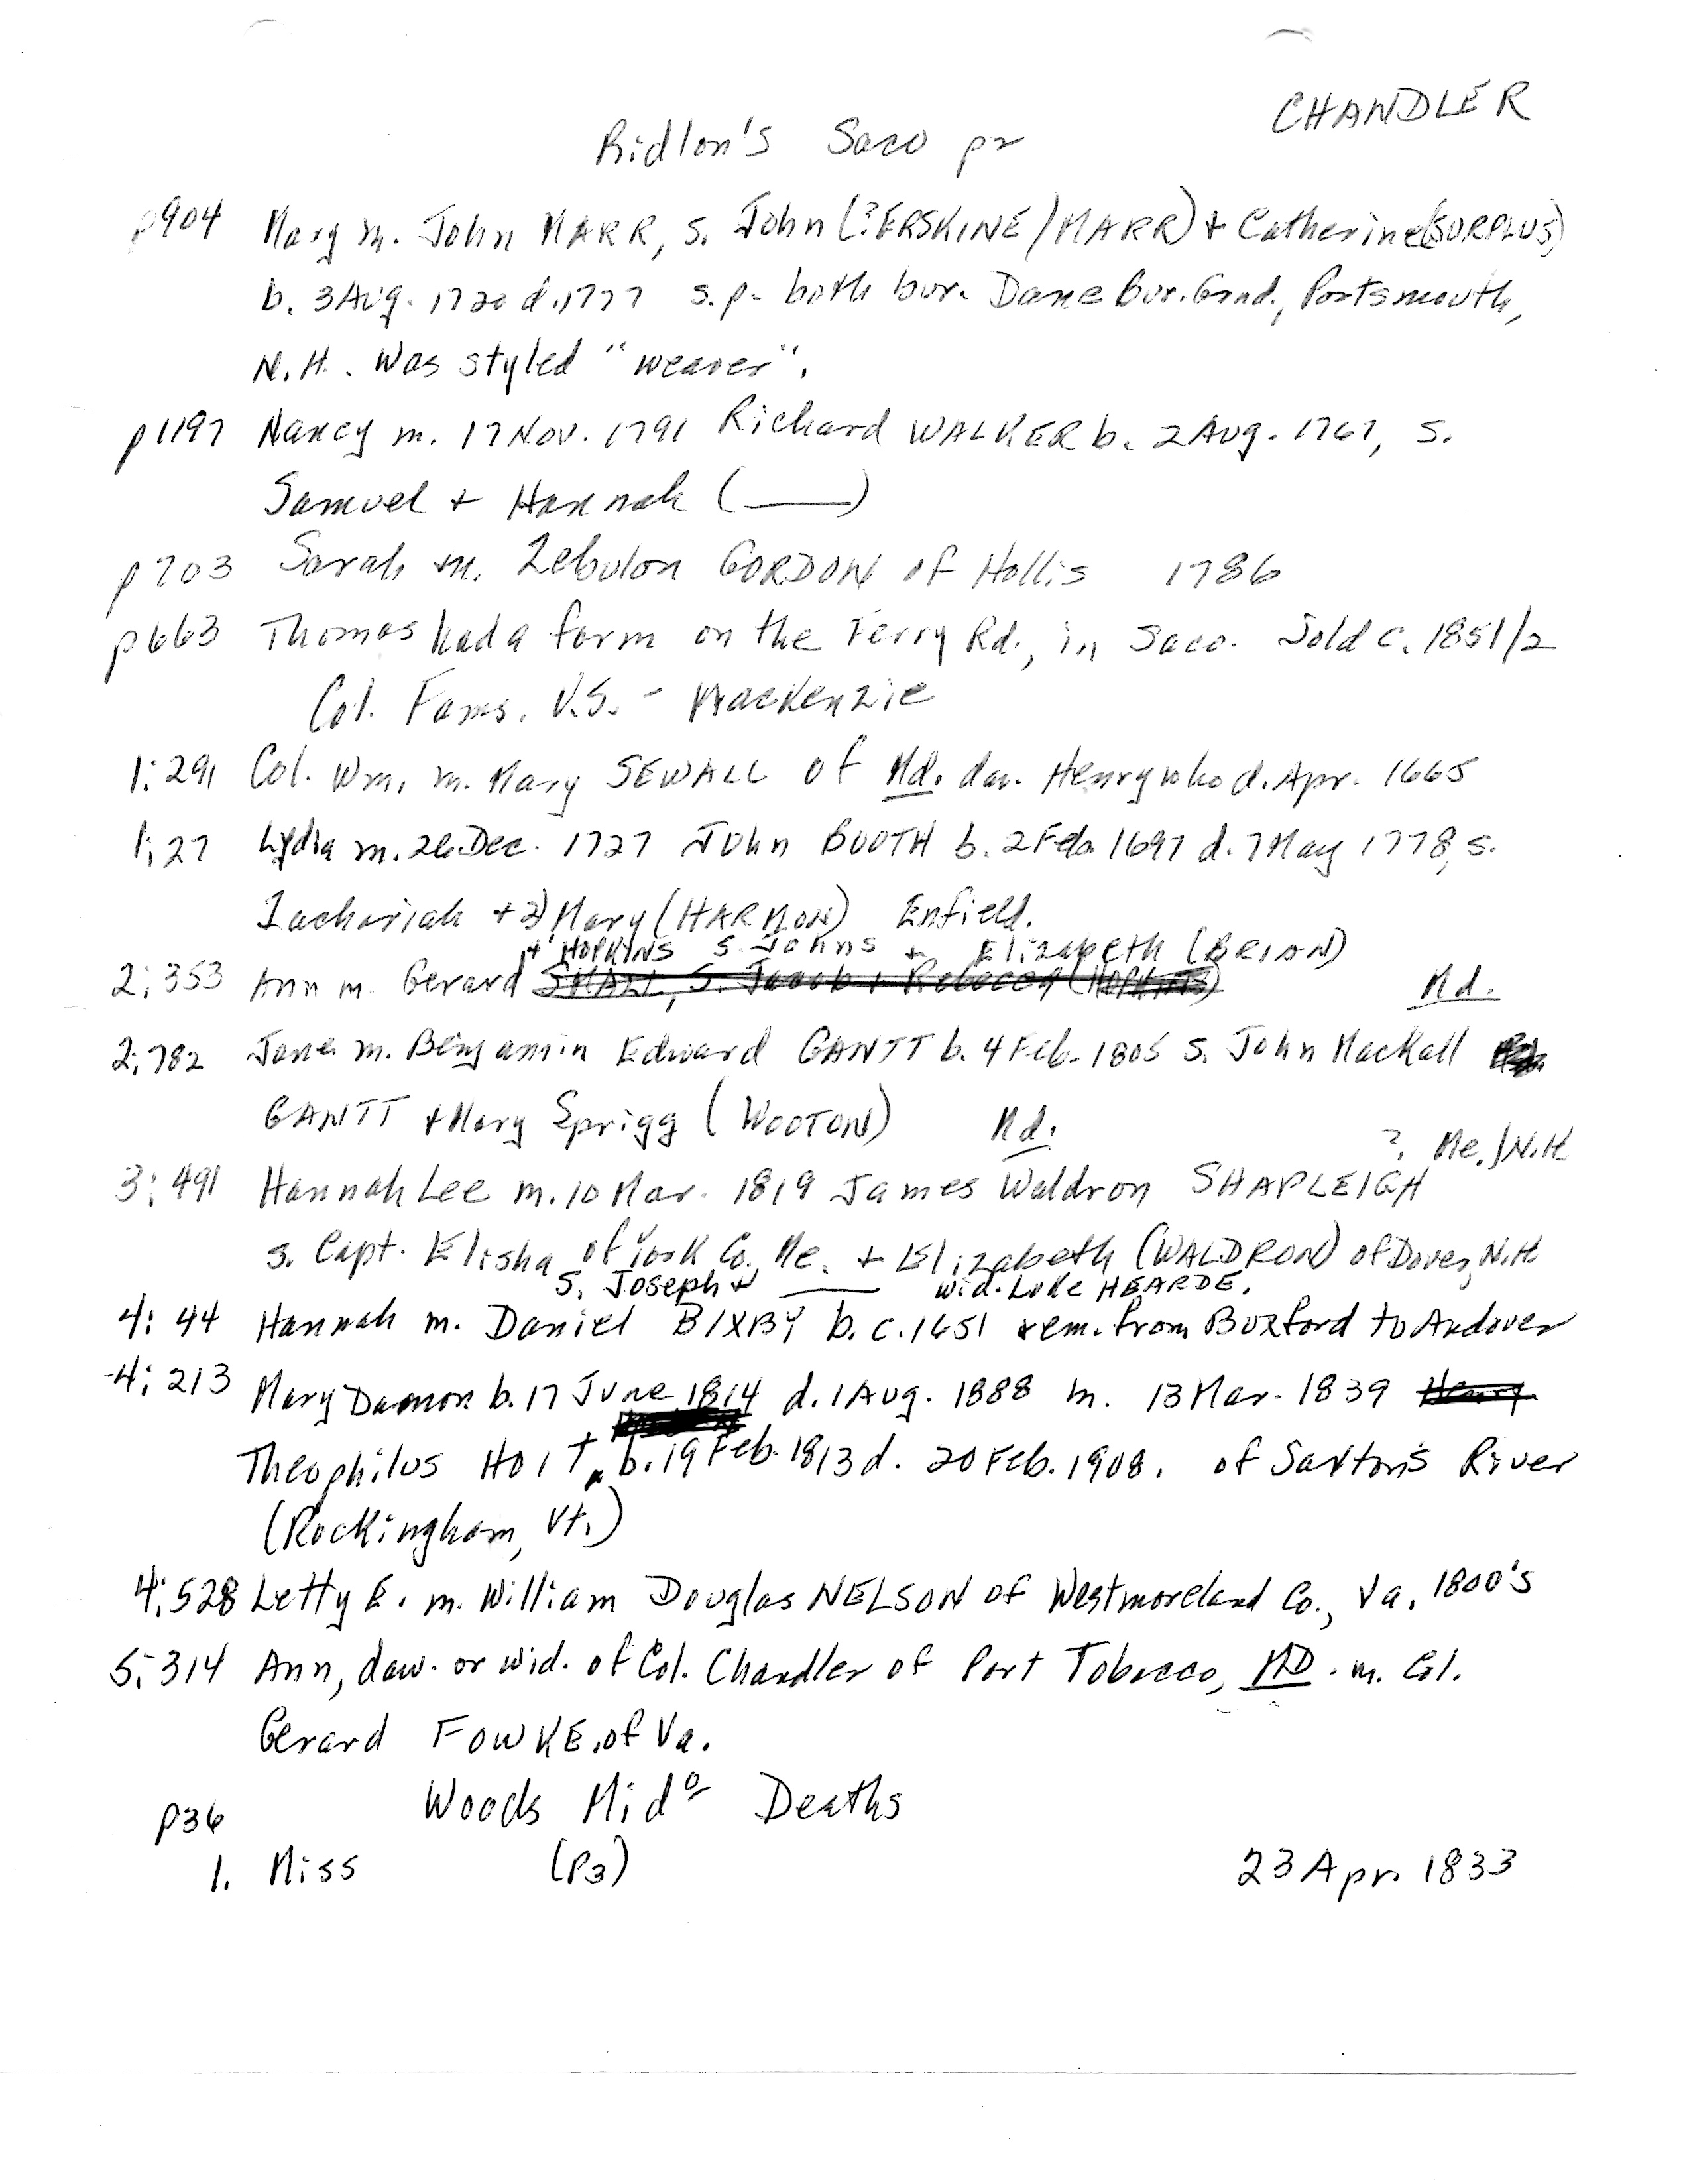 CHANDLER
Ridlon's Saco pr
p904 Mary m. John MARR, s. John (?ERSKINE/MARR) + Catherine (SURPLUS)
b. 3 Aug. 1720 d. 1777 s.p. both bur. Dame Bur. Grnd., Portsmouth,
N.H.. Was styled "weaver".
p1197 Nancy m. 17 Nov. 1791 Richard WALKER b. 2 Aug. 1767, s.
Samuel + Hannah (___)
p703 Sarah m. Zebulon GORDON of Hollis 1786
p663 Thomas had a farm on the Ferry Rd., in Saco. Sold c. 1851/2
Col. Fams. U.S. - MacKenzie
1:291 Col. Wm. m. Mary SEWALL of Md. dau. Henry who d. Apr. 1665
1:27 Lydia m. 26 Dec. 1727 John BOOTH b. 2 Feb. 1697 d. 7 May 1778, s.
Zachariah + 2) Mary (HARMON) Enfield.
+ HOPKINS s Johns + Elizabeth (BRIAN)
2:353 Ann m. Gerard Md.
2:782 Jane m. Benjamin Edward GANTT b. 4 Feb. 1805 s. John Mackall
GANTT + Mary Sprigg (WOOTON) Md.
? Me./N.H
3:491 Hannah Lee m. 10 Mar. 1819 James Waldron SHAPLEIGH
s. Capt. Elisha of York Co., Me. + Elizabeth (WALDRON) of Dover, N.H
s. Joseph + ___ wid. Luke HEARDE.
4:44 Hannah m. Daniel BIXBY b. c. 1651 rem. from Boxford to Andover
4:213 Mary Damon b. 17 June 1814 d. 1 Aug. 1888 m. 13 Mar. 1839 Henry
Theophilus HOIT, b. 19 Feb. 1813 d. 20 Feb. 1908. of Saxton's River
(Rockingham, Vt.)
4:528 Letty E. m. William Douglas NELSON of Westmoreland Co., Va. 1800's
5:314 Ann, daw. or wid. of Col. Chandler of Port Tobacco, MD. m. Col.
Gerard FOWKE. of Va.
Woods Mido Deaths
p36
1. Miss (P3) 23 Apr. 1833